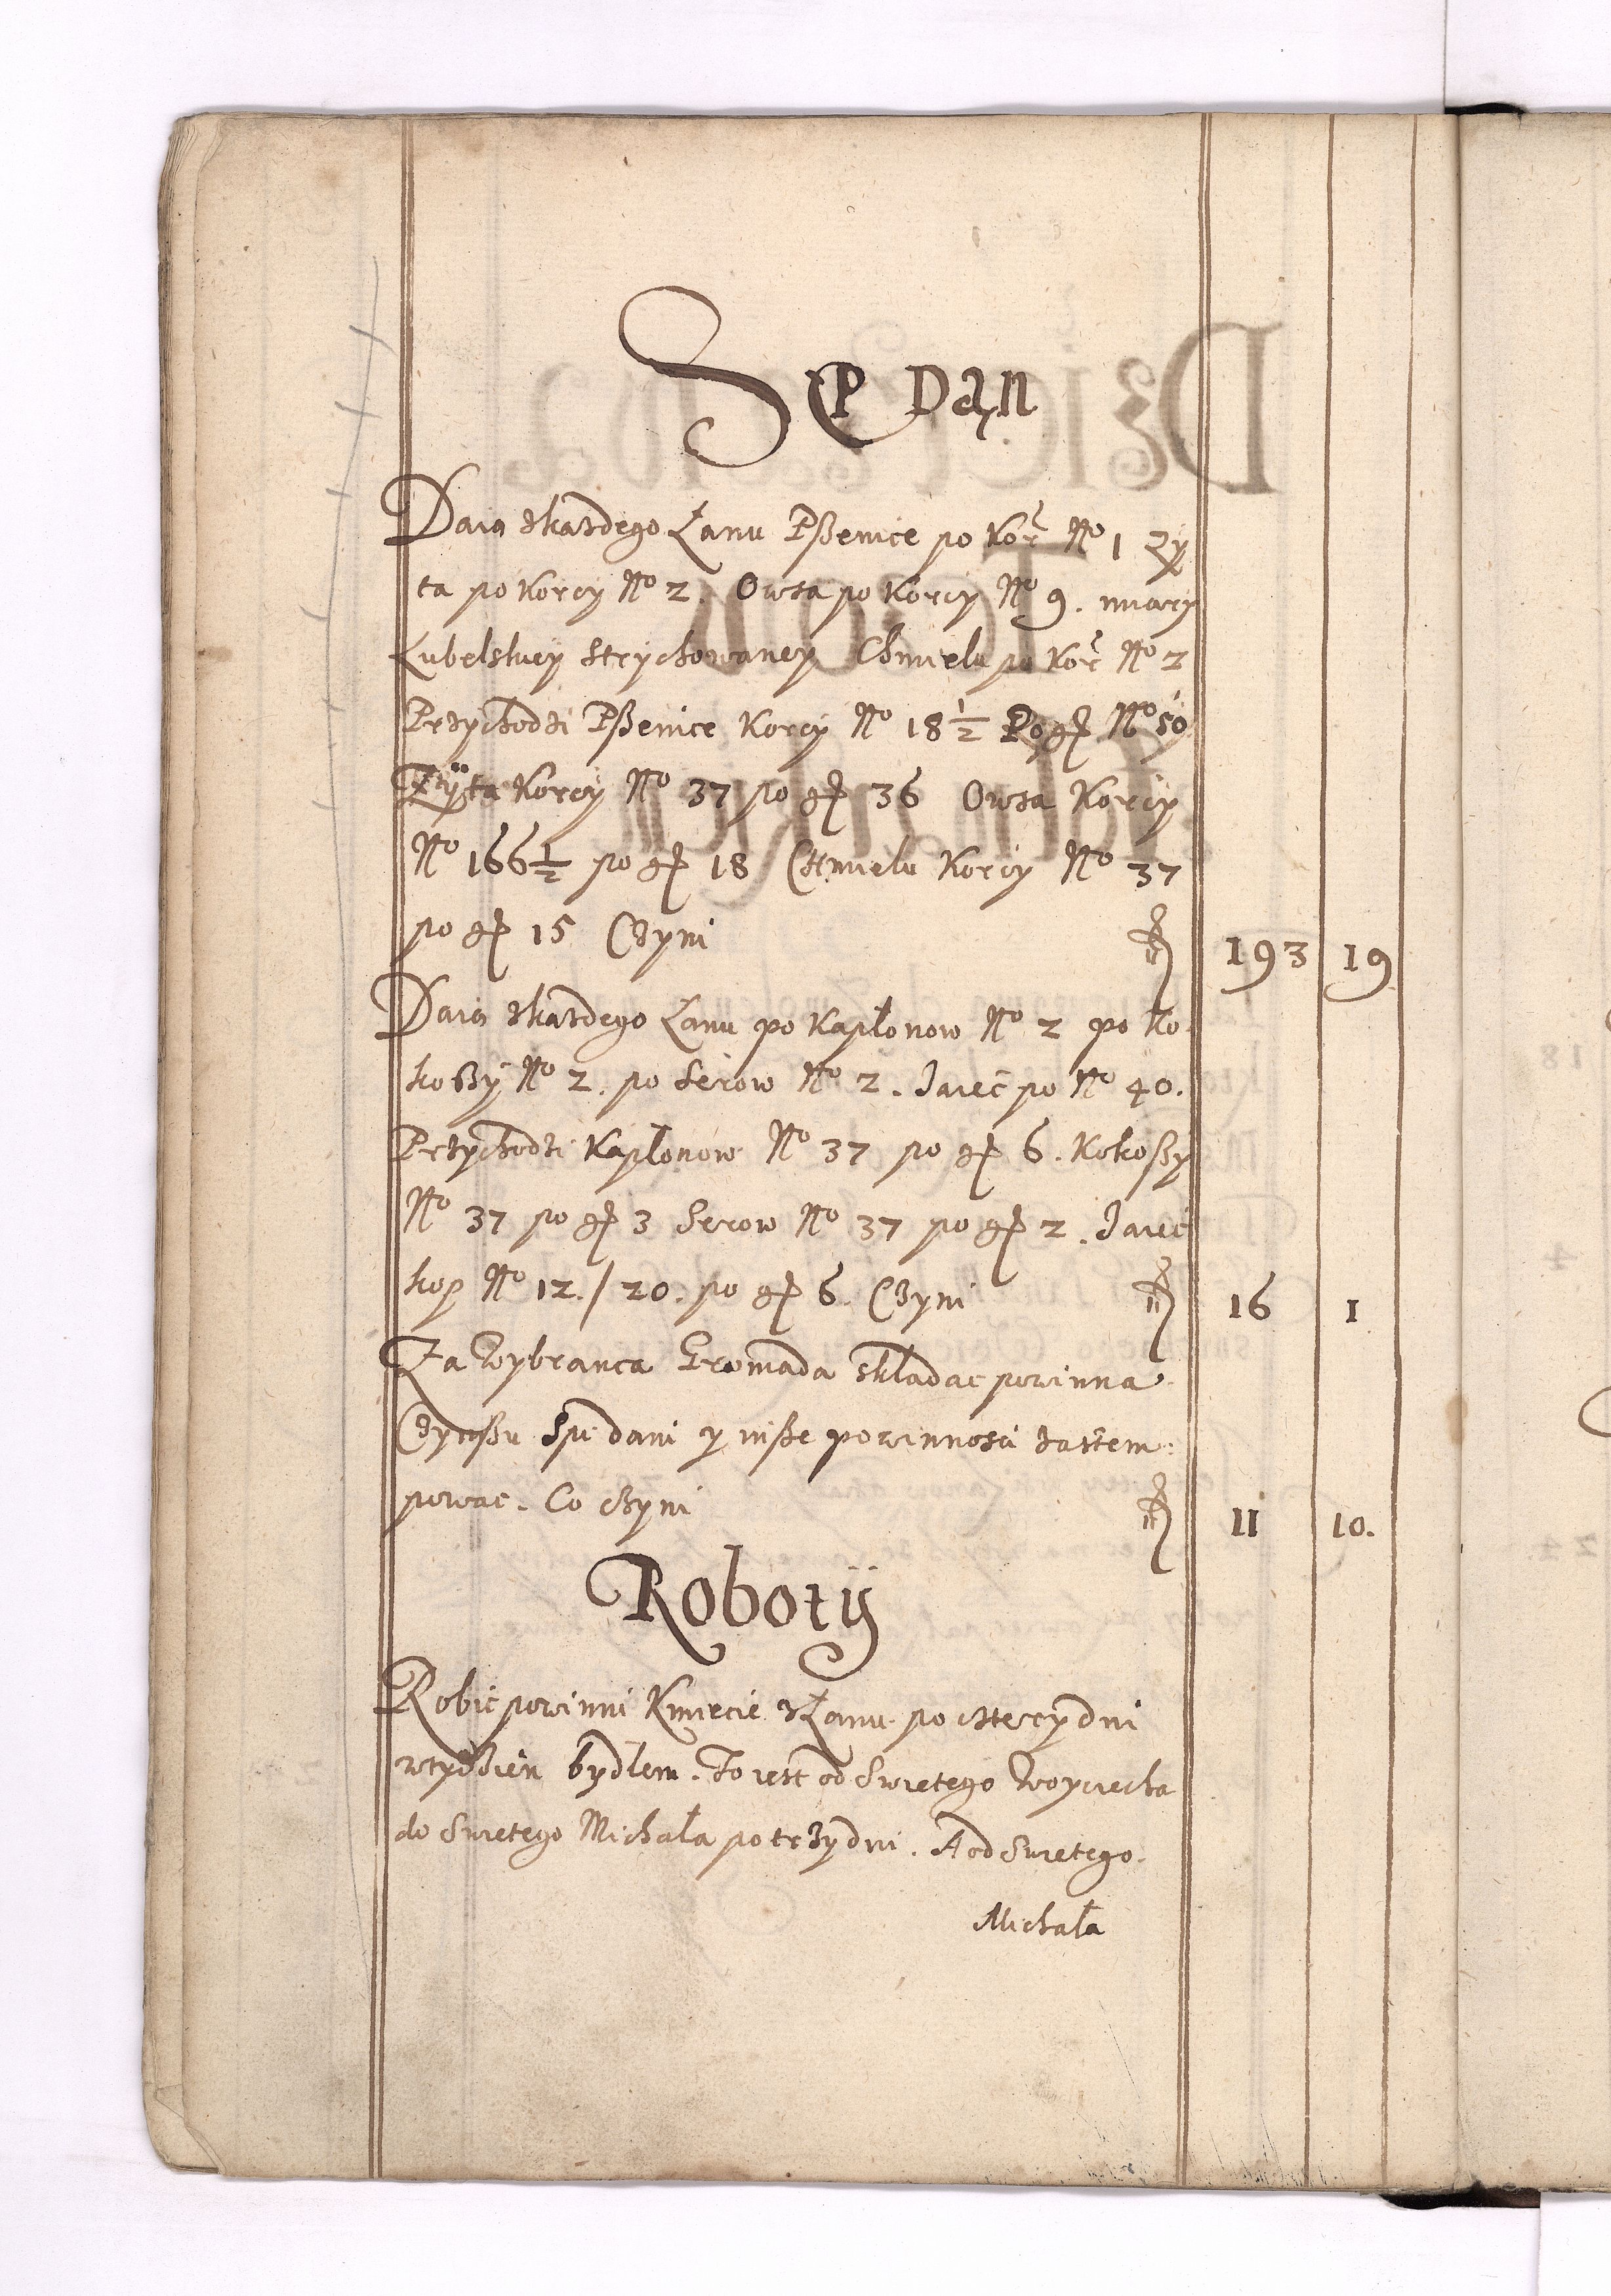 Sęp Dań
Daią zkazdego Łanu Pßenice po Kor̃ No 1 Zy
ta po Korcy No 2. Owsa po Korcy No 9. miary
Lubelskiey Strychowaney Chmielu po Kor̃ No 2
Przychodzi Pßenice Korcy No 18 1/2 Po gr No 50
Zÿta Korcy No 37 po gr 36 Owsa Korcy
No 166 1/2 po gr 18 Chmielu Korcy No 37
po gr 15 Czyni fl 193 19
Daią zkazdego Łanu po Kapłonow No 2 po Ko
koßy No 2. po Serow No 2. Jaiec po No 40.
Przychodzi Kapłonow No 37 po gr 6. Kokoßy
No 37 po gr 3 Serow No 37 po gr 2. Jaiec
kop No 12./20. po gr 6. Czyni fl 16 1
Za Wybranca Gromada składac powinna
Czynßu Sp dani y inße powinnosci zastem:
powac. Co czyni fl 11 10.
Robotÿ
Robic powinni Kmiecie zŁanu po czterydni
wtydzien bydlem. To iest od Swietego Woyciecha
do Swietego Michała potrzydni. A od Swietego
Michała